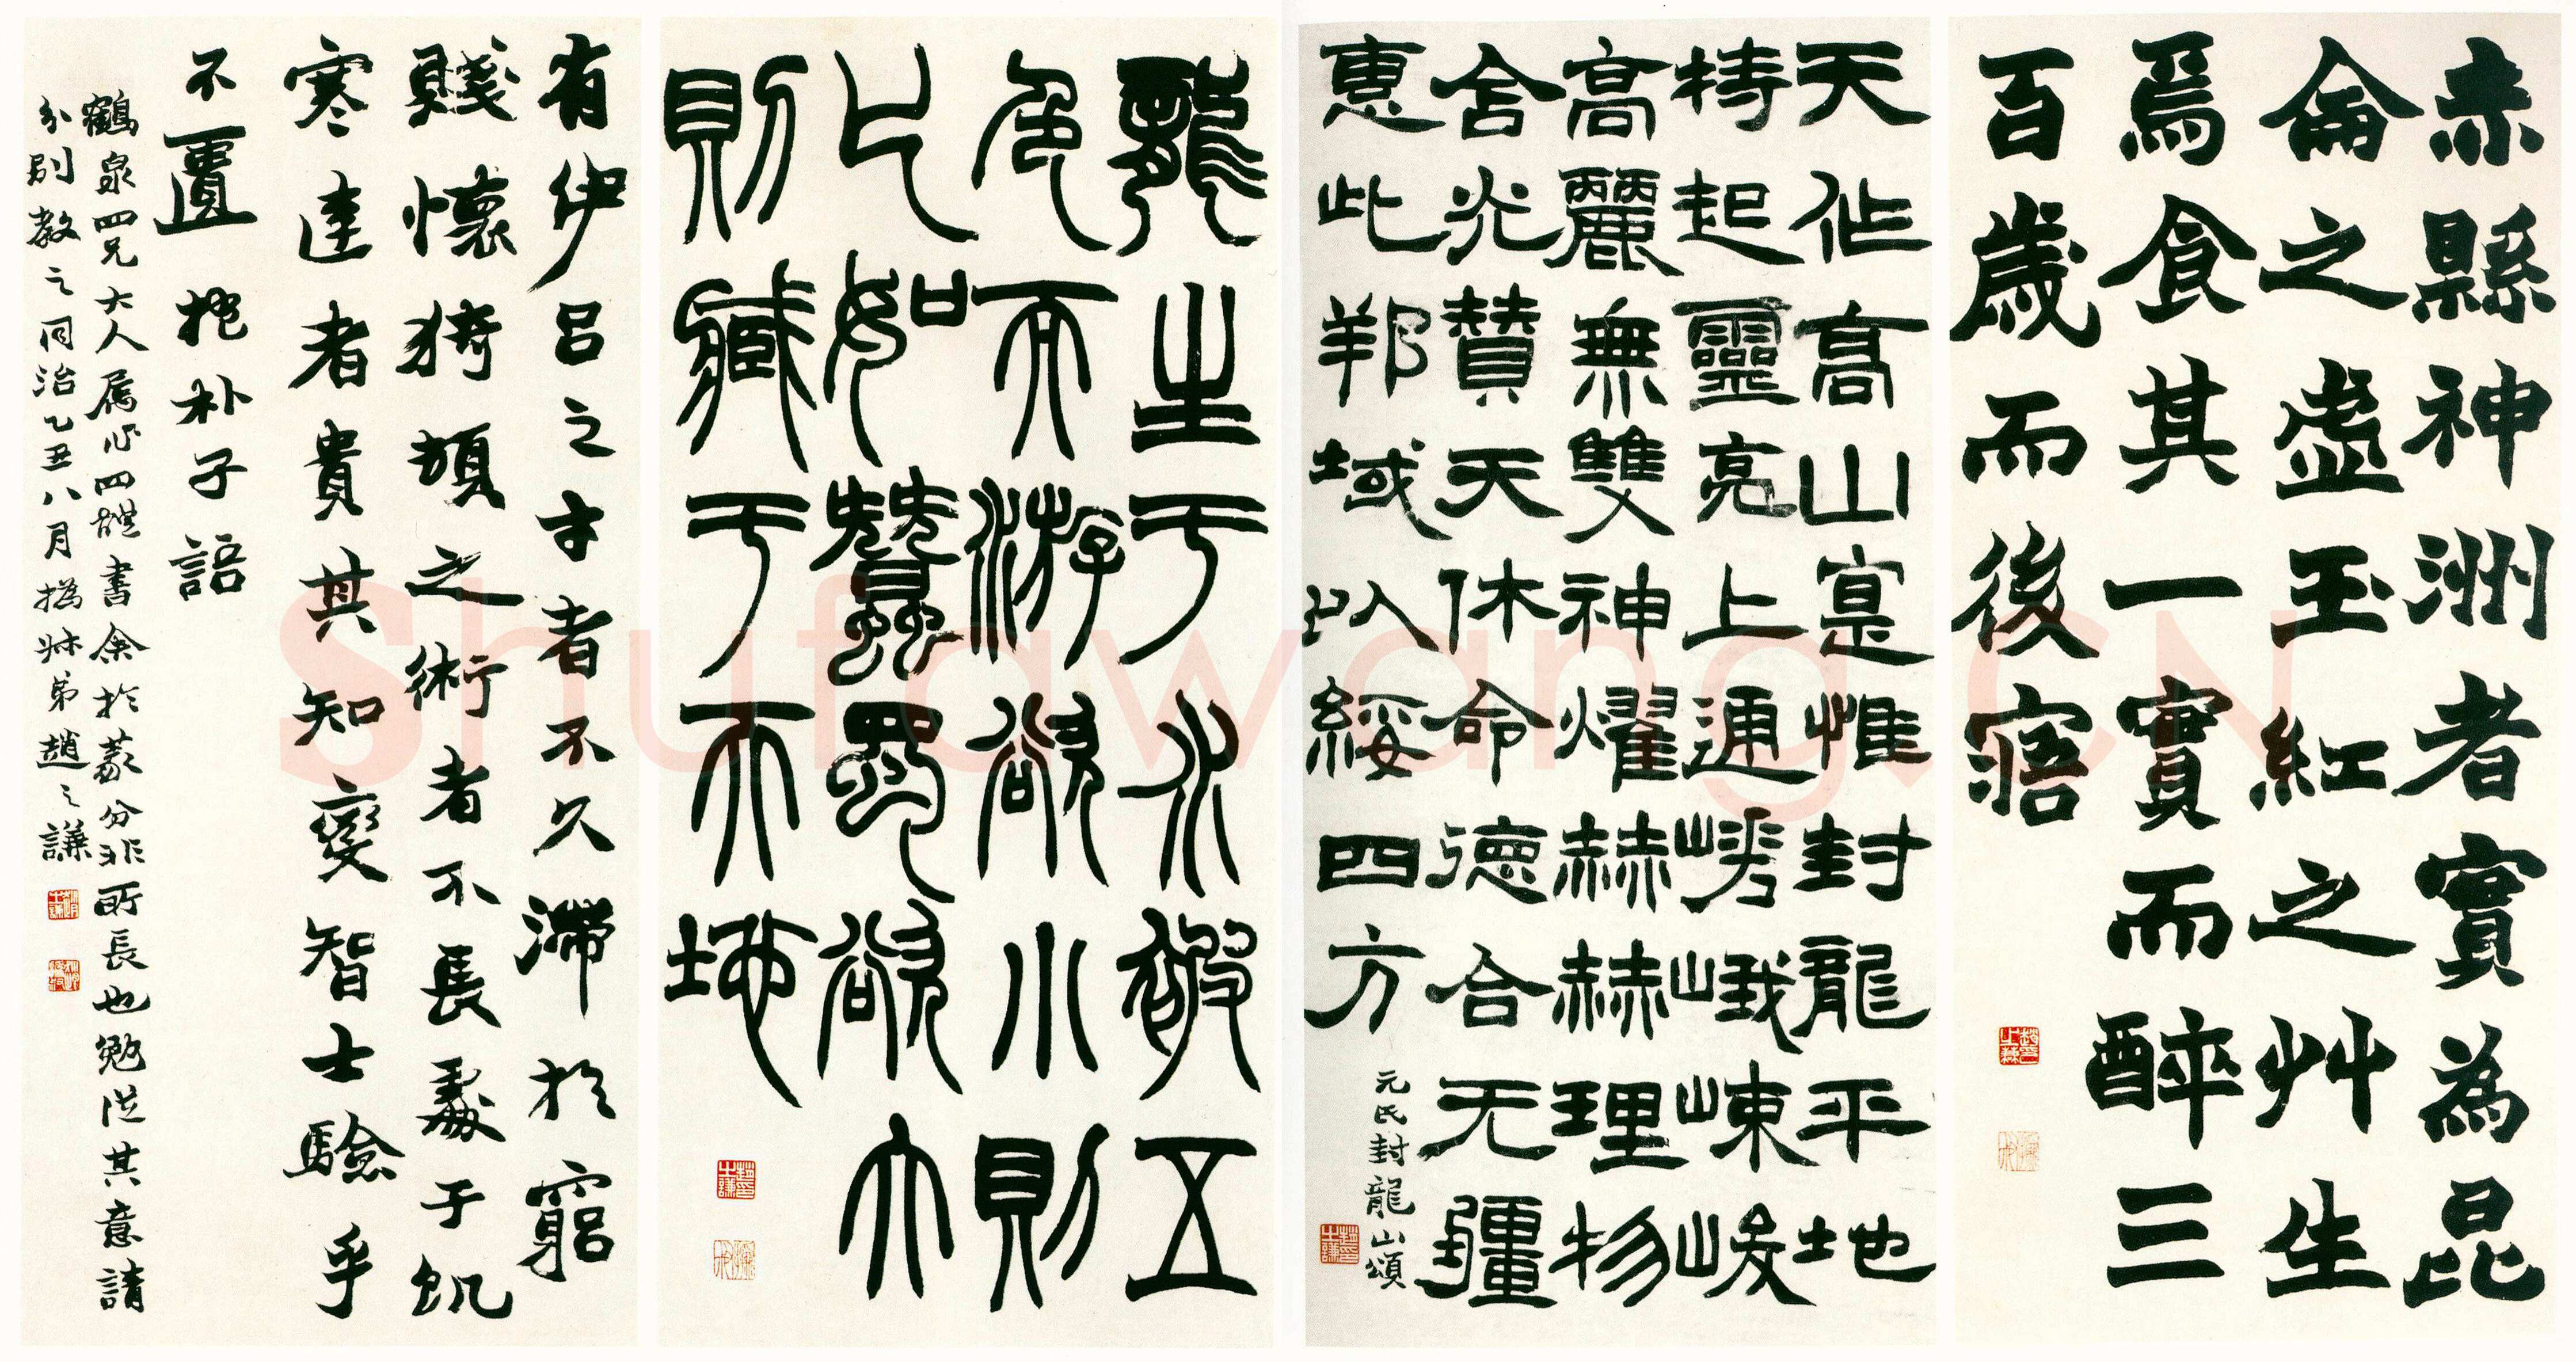 赤縣神洲者實為昆
侖之虛玉紅之艸生
焉食其一實而醉三
百歲而後寤
天作高山寔惟封龍平地
特起靈亮上通嵯峨崠峻
高麗無雙神燿赫赫理物
含光贊天休命德合无疆
惠此邦域以綏四方
元氏封龍山頌
龍生于水被五
色而游欲小則
匕如蠶蜀欲大
則臧于天地
有伊呂之才者不久滯於窮
賤懷猗頓之術者不長處于飢
寒達者貴其知變智士驗乎
不匱 抱朴子語
鶴泉四兄大人屬作四體書余於篆分非所長也勉從其意請
分別教之同治乙丑八月撝叔弟趙之謙
Shufawang.CN